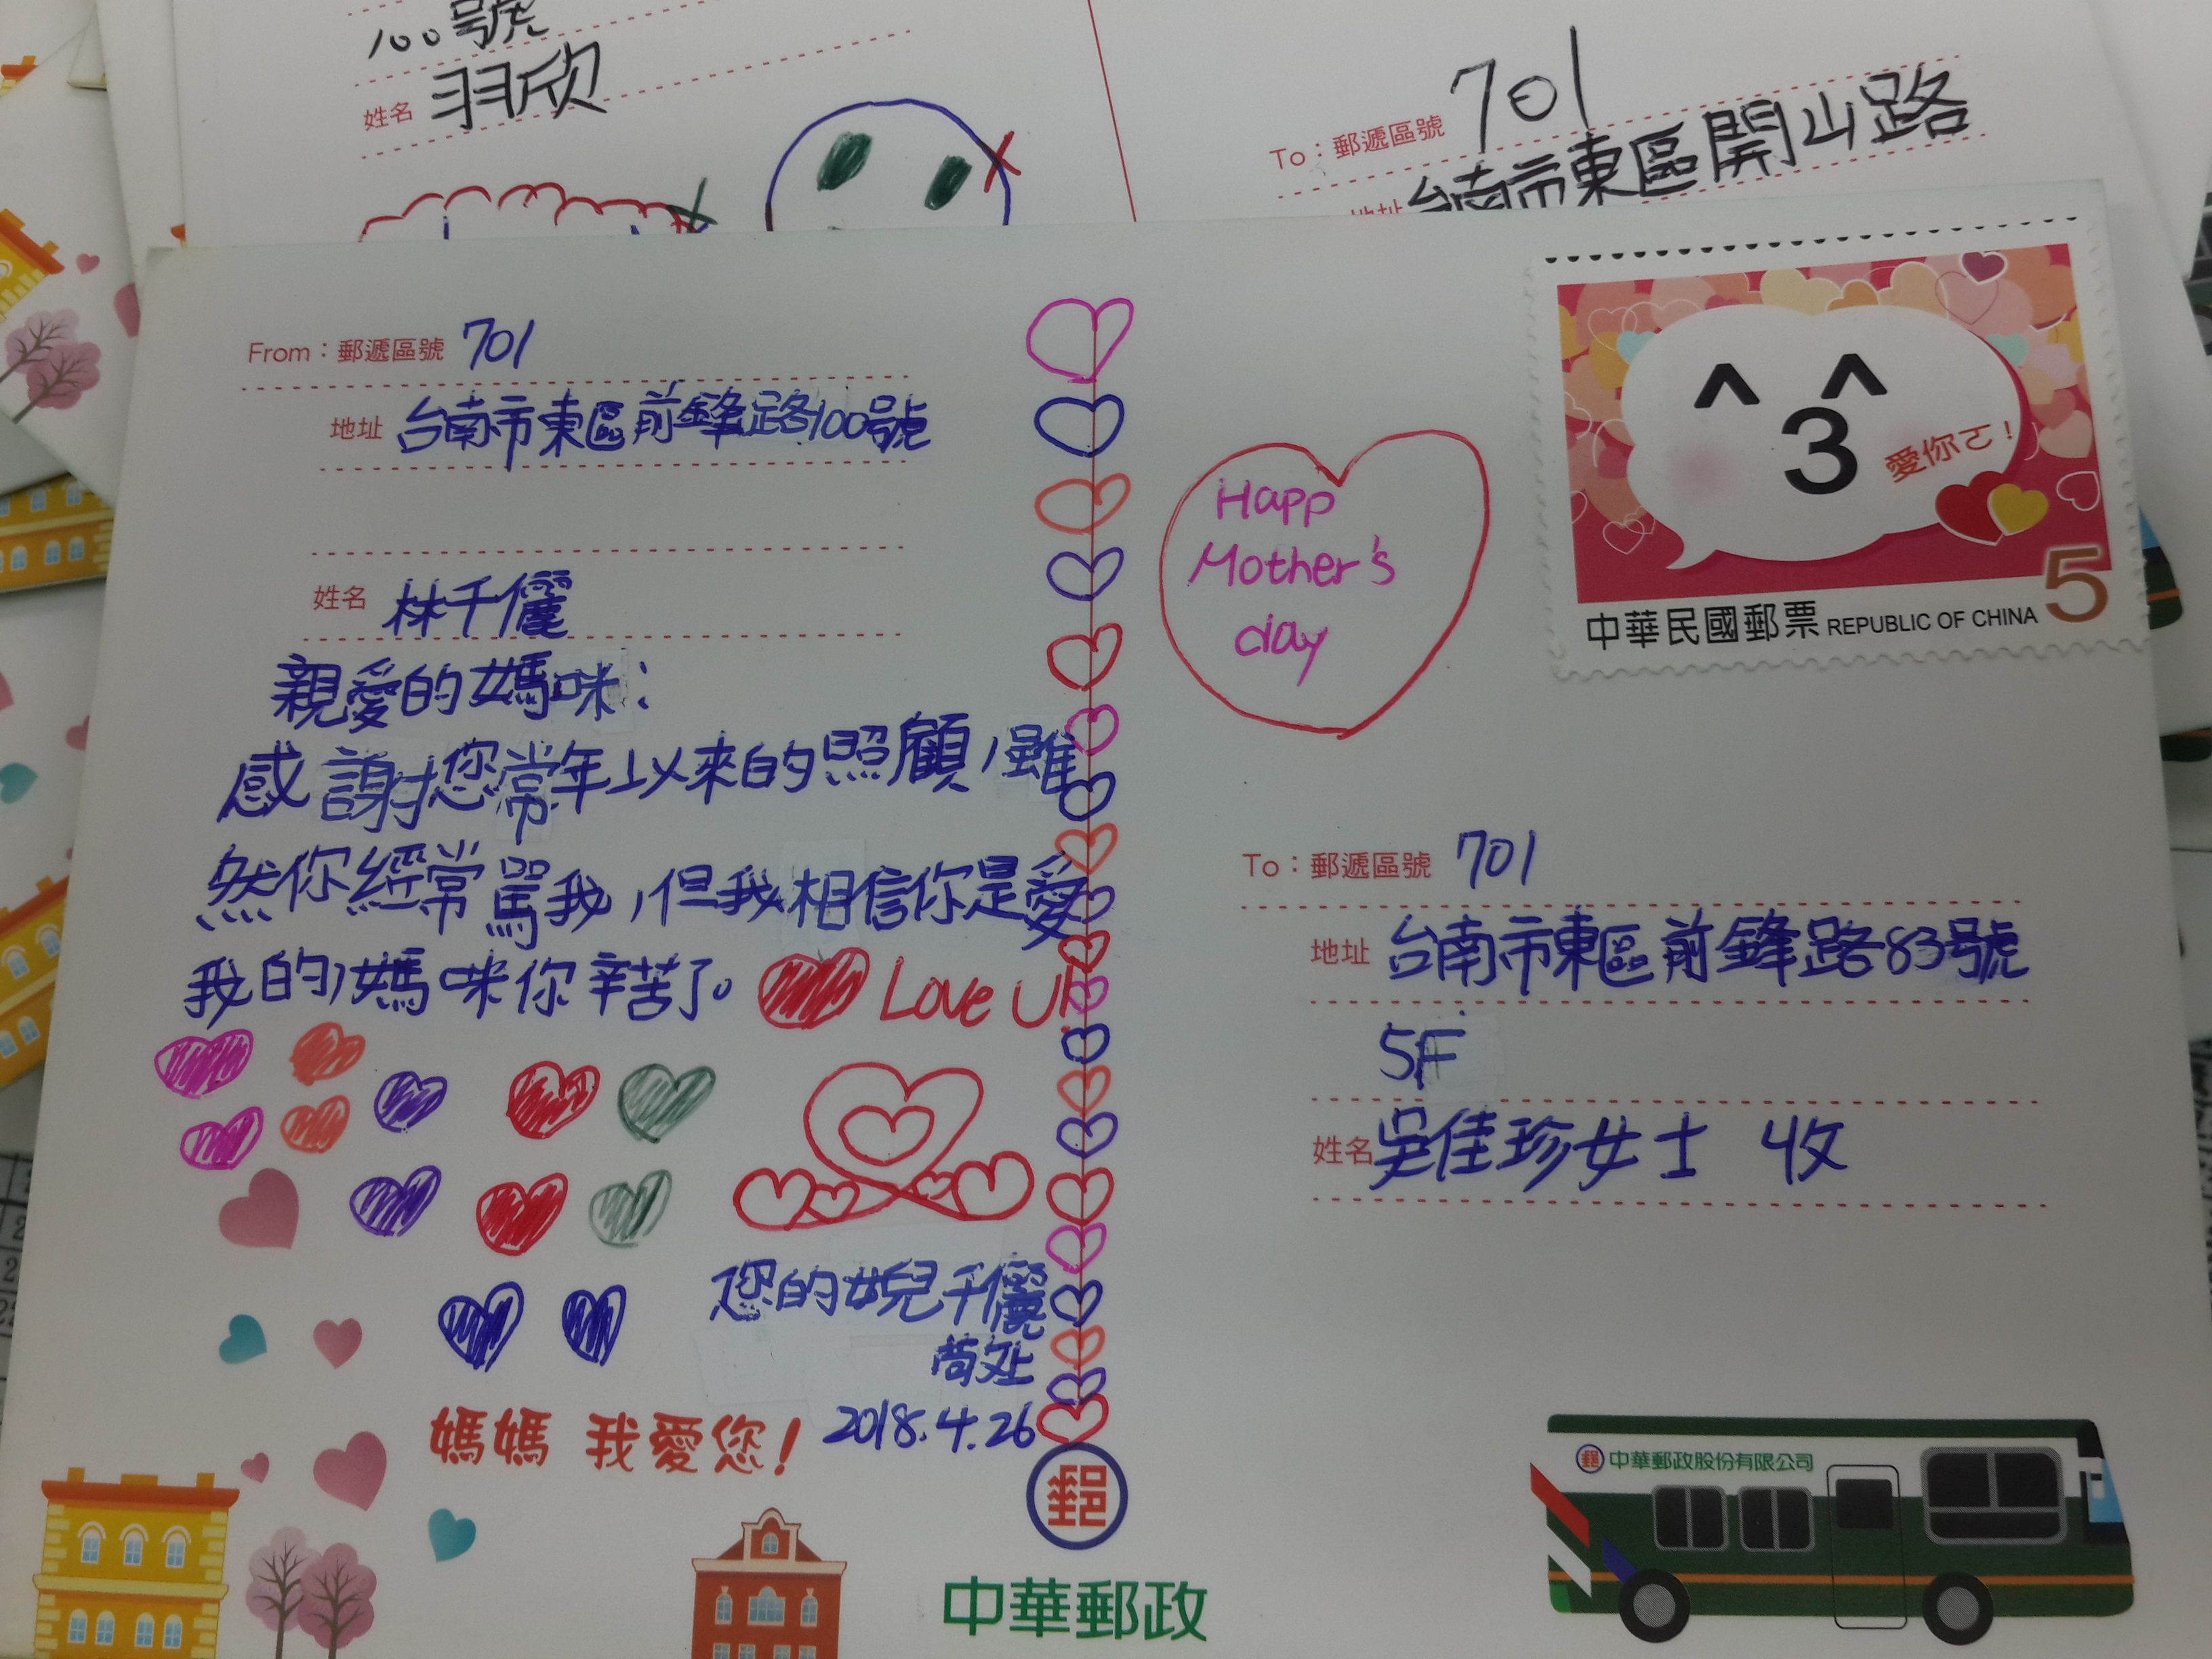 100號
姓名 羽欣
To：郵遞區號 701
台南市東區開山路
地址
From：郵遞區號 701
地址 台南市東區前鋒路100號
姓名 林千儷
親愛的媽咪：
感謝您常年以來的照顧，雖
然你經常罵我，但我相信你是愛
我的，媽咪你辛苦了。 Love U!
您的女兒千儷
2018.4.26
媽媽 我愛您!
Happ
Mother's
day
愛你ㄛ!
中華民國郵票 REPUBLIC OF CHINA 5
To：郵遞區號 701
地址 台南市東區前鋒路83號
5F
姓名 吳佳珍女士 收
郵
中華郵政
郵 中華郵政股份有限公司